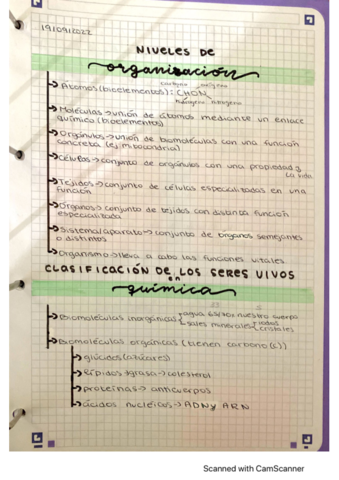 19/09/2022
NIVELES DE
organización
carbono oxígeno
→ Átomos (bioelementos): CHON
hidrógeno nitrógeno
→ Moléculas → unión de átomos mediante un enlace
químico (bioelementos)
→ Orgánulos → unión de biomoléculas con una función
concreta (ej. mitocondria)
→ Células → conjunto de orgánulos con una propiedad →
La vida
→ Tejidos → conjunto de células especializadas en una
función
→ Órganos → conjunto de tejidos con distinta función
especializada
→ Sistema/aparato → conjunto de órganos semejantes
o distintos
→ Organismo → lleva a cabo las funciones vitales
CLASIFICACIÓN DE LOS SERES VIVOS
en
química
→ Biomoléculas inorgánicas → agua nuestro cuerpo
→ sales minerales
cristales
→ Biomoléculas orgánicas (tienen carbono (C))
→ glúcidos (azúcares)
→ lípidos → grasa → colesterol
→ proteínas → anticuerpos
→ ácidos nucléicos → ADN y ARN
Scanned with CamScanner